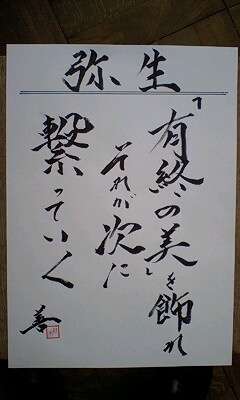 弥生
「有終の美」を飾れ
それが次に
繋っていく
善